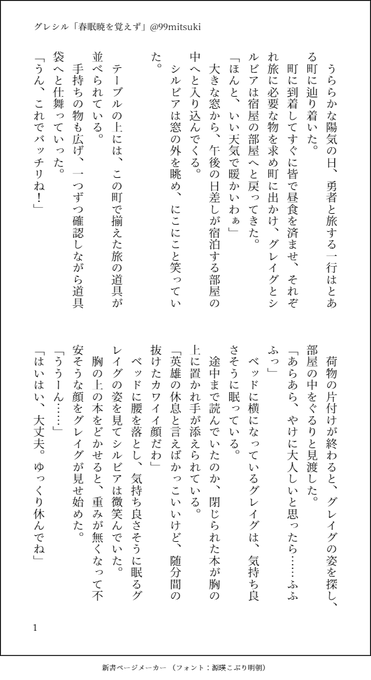 グレシル「春眠暁を覚えず」@99mitsuki
うららかな陽気の日、勇者と旅する一行はとあ
る町に辿り着いた。
町に到着してすぐに皆で昼食を済ませ、それぞ
れ旅に必要な物を求め町に出かけ、グレイグとシ
ルビアは宿屋の部屋へと戻ってきた。
「ほんと、いい天気で暖かいわぁ」
大きな窓から、午後の日差しが宿泊する部屋の
中へと入り込んでくる。
シルビアは窓の外を眺め、にこにこと笑ってい
た。
テーブルの上には、この町で揃えた旅の道具が
並べられている。
手持ちの物も広げ、一つずつ確認しながら道具
袋へと仕舞っていった。
「うん、これでバッチリね！」
荷物の片付けが終わると、グレイグの姿を探し、
部屋の中をぐるりと見渡した。
「あらあら、やけに大人しいと思ったら……ふふ
ふっ」
ベッドに横になっているグレイグは、気持ち良
さそうに眠っている。
途中まで読んでいたのか、閉じられた本が胸の
上に置かれ手が添えられている。
「英雄の休息と言えばかっこいいけど、随分間の
抜けたカワイイ顔だわ」
ベッドに腰を落とし、気持ち良さそうに眠るグ
レイグの姿を見てシルビアは微笑んでいた。
胸の上の本をどかせると、重みが無くなって不
安そうな顔をグレイグが見せ始めた。
「ううーん……」
「はいはい、大丈夫。ゆっくり休んでね」
1
新書ページメーカー（フォント：源暎こぶり明朝）